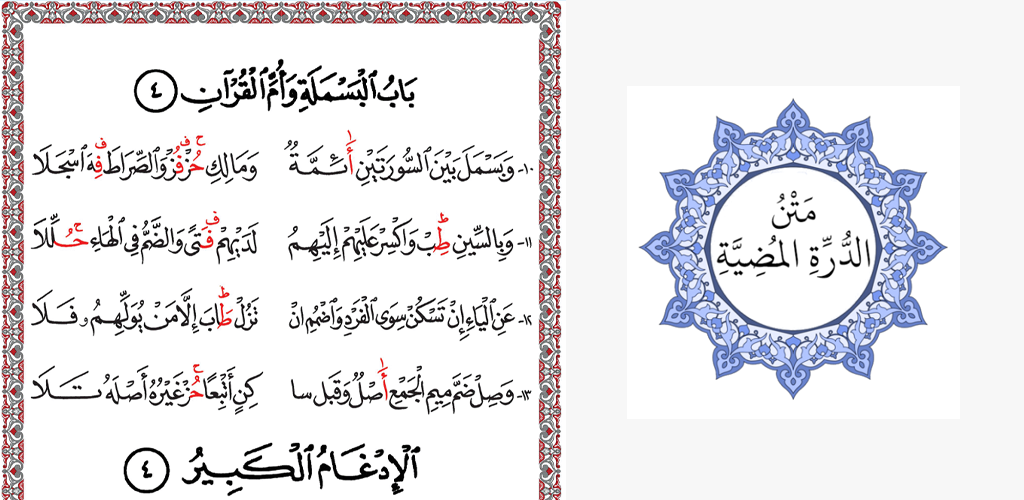 بَابُ ٱلْبَسْمَلَةِ وَأُمِّ ٱلْقُرْآنِ ٤
١٠- وَبَسْمَلَ بَيْنَ ٱلسُّورَتَيْنِ أَئِمَّةٌ وَمَالِكِ حُزْ فُزْ وَٱلصِّرَاطَ فِهَ ٱسْجَلَا
١١- وَبِالسِّينِ طِبْ وَاكْسِرْ عَلَيْهِمْ إِلَيْهِمُ لَدَيْهِمْ فَتًى وَالضَّمُّ فِي ٱلْهَاءِ حُلِّلَا
١٢- عَنِ ٱلْيَاءِ إِنْ تَسْكُنْ سِوَى ٱلْفَرْدِ وَٱضْمُمِ انْ تَزُلْ طَابَ إِلَّا مَنْ يُوَلِّهِمُ فَلَا
١٣- وَصِلْ ضَمَّ مِيمِ ٱلْجَمْعِ أَصْلٌ وَقَبْلَ سَا كِنٍ أَتْبِعًا حُزْ غَيْرُهُ أَصْلَهُ تَلَا
ٱلْإِدْغَامُ ٱلْكَبِيرُ ٤
مَتْنُ
الدُّرَّةِ المُضِيَّةِ